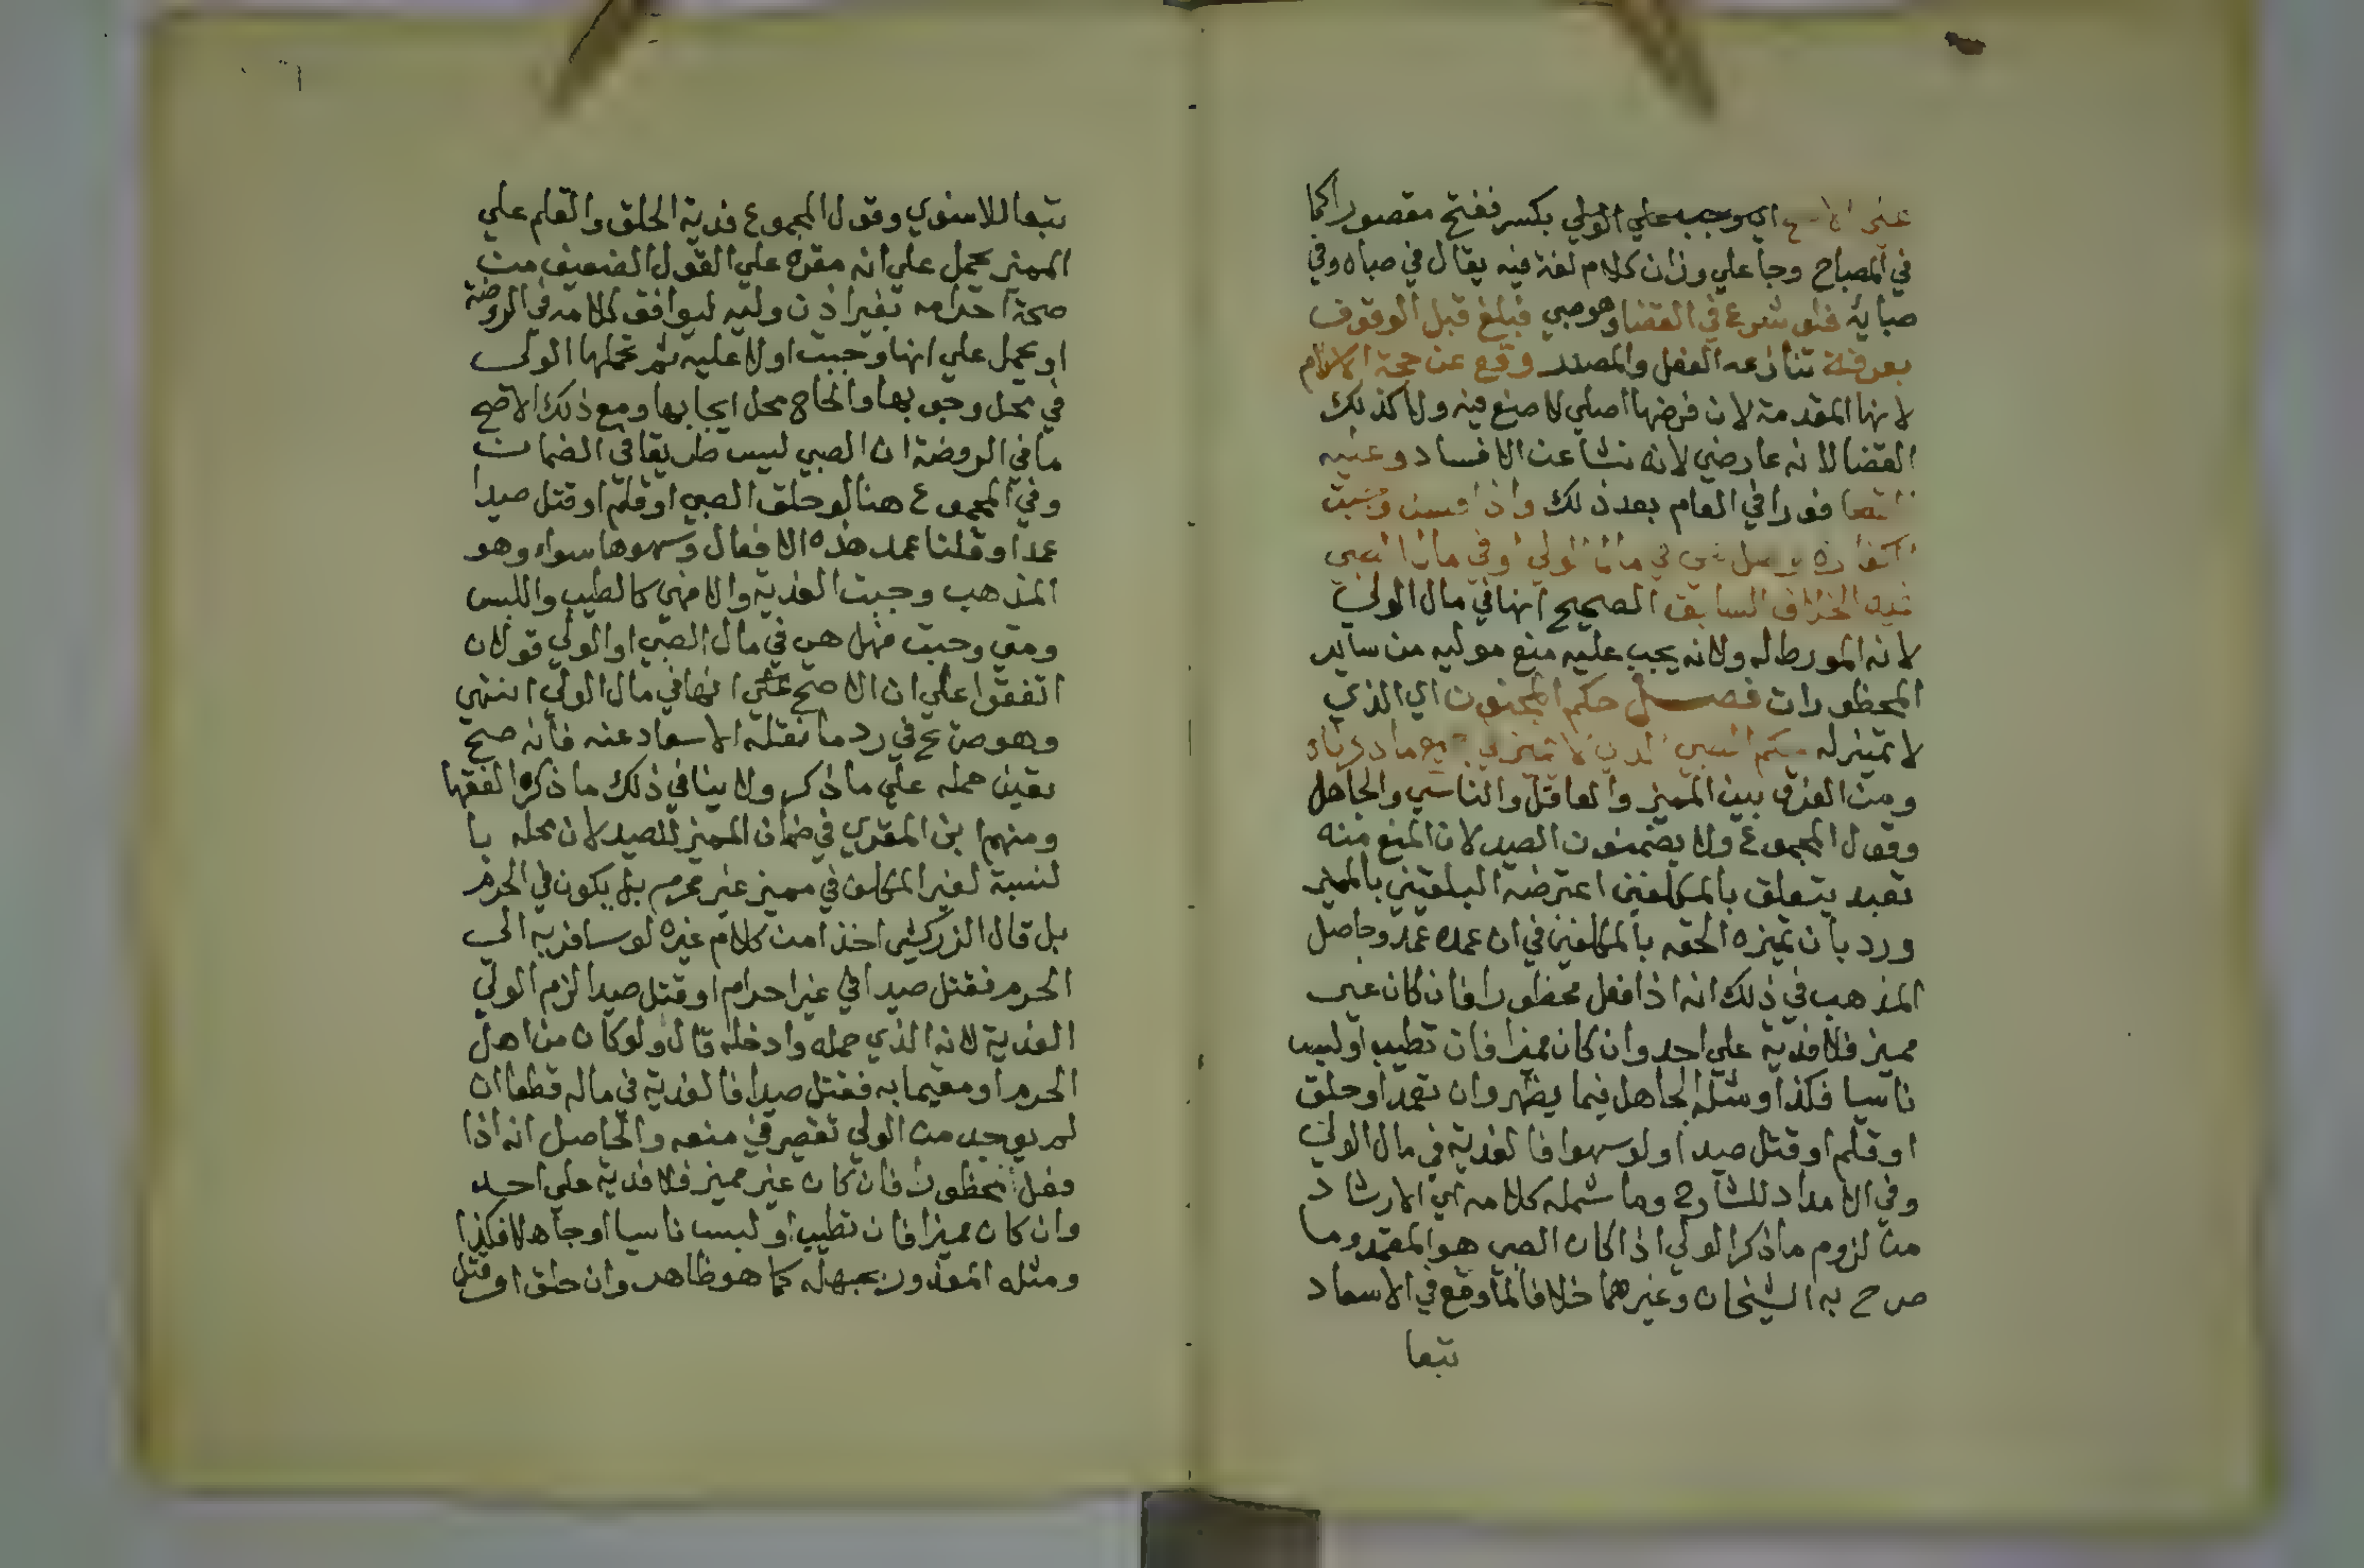 اي وجب علي الولي بكسر ففتح مقصورا كما
في المصباح وجا علي وزان كلام لغة فيه يقال في صباه وفي
صبايه فلو شرع في القضا وهو صبي فبلغ قبل الوقوف
بعرفة تنازعه الفعل والمصدر وقع عن حجة الاسلام
لانها المقدمة لان فرضها اصلي لا صنع فيه ولا كذلك
القضا لانه عارضي لانه نشا عن الافساد وعليه
القضا فورا في العام بعد ذلك واذا
في مال الولي او في مال الصبي
فيه الخلاف السابق الصحيح انها في مال الولي
لانه المورط له ولانه يجب عليه منع موليه من ساير
المحظورات فصل حكم المجنون اي الذي
لا تمييز له حكم الصبي الذي لا تمييز له ما ذكرناه
ومن الفرق بين المميز والعاقل والناسي والجاهل
وقول المجموع ولا يضمنون الصيد لان المنع منه
تعبد يتعلق بالمكلفين اعترضه البلقيني بالمميز
ورد بان تميزه الحقه بالمكلفين في ان عمده عمد وحاصل
المذهب في ذلك انه اذا فعل محظورا فان كان غير
مميز فلا فدية علي احد وان كان مميزا فان تطيب او لبس
ناسيا فكذا ومثله الجاهل فيما يظهر وان تعمد او حلق
او قلم او قتل صيدا ولو سهوا فالفدية في مال الولي
وفي الامداد للشارح وما شمله كلامه اي الارشاد
من لزوم ما ذكر الولي اذا كان الصبي هو المعتمد وما
صرح به الشيخان وغيرهما خلافا لما وقع في الاسعاد
تبعا
تبعا للاسنوي وقول المجموع فدية الحلق والقلم علي
المميز يحمل علي انه مفرع علي القول الضعيف من
صحة احرامه بغير اذن وليه ليوافق كلامه في الروضة
او يحمل علي انها وجبت اولا عليه ثم تحملها الولي
في محل وجوبها والحاج محل ايجابها ومع ذلك الاصح
ما في الروضة ان الصبي ليس طريقا في الضمان
وفي المجموع هنا لو حلق الصبي او قلم او قتل صيدا
عمدا وقلنا عمد هذه الافعال وسهوها سواء وهو
المذهب وجبت الفدية والا فهي كالطيب واللبس
ومتي وجبت فهل هي في مال الصبي او الولي قولان
اتفقوا علي ان الاصح انها في مال الولي انتهي
وهو صريح في رد ما نقله الاسعاد عنه فانه صح
تعين حمله علي ما ذكر ولا ينافي ذلك ما ذكره الفقها
ومنهم ابن المقري في ضمان المميز للصيد لان محله با
لنسبة لغير المكلف في مميز غير محرم بل يكون في الحرم
بل قال الزركشي اخذا من كلام غيره لو سافر به الي
الحرم فقتل صيدا في غير احرام او قتل صيدا لزم الولي
الفدية لانه الذي حمله وادخله قال ولو كان من اهل
الحرم او مقيما به فقتل صيدا فالفدية في ماله قطعا ان
لم يوجد من الولي تقصير في منعه والحاصل انه اذا
فعل محظورا فان كان غير مميز فلا فدية علي احد
وان كان مميزا فان تطيب او لبس ناسيا او جاهلا فكذا
ومثله المعذور بجهله كما هو ظاهر وان حلق او قتل